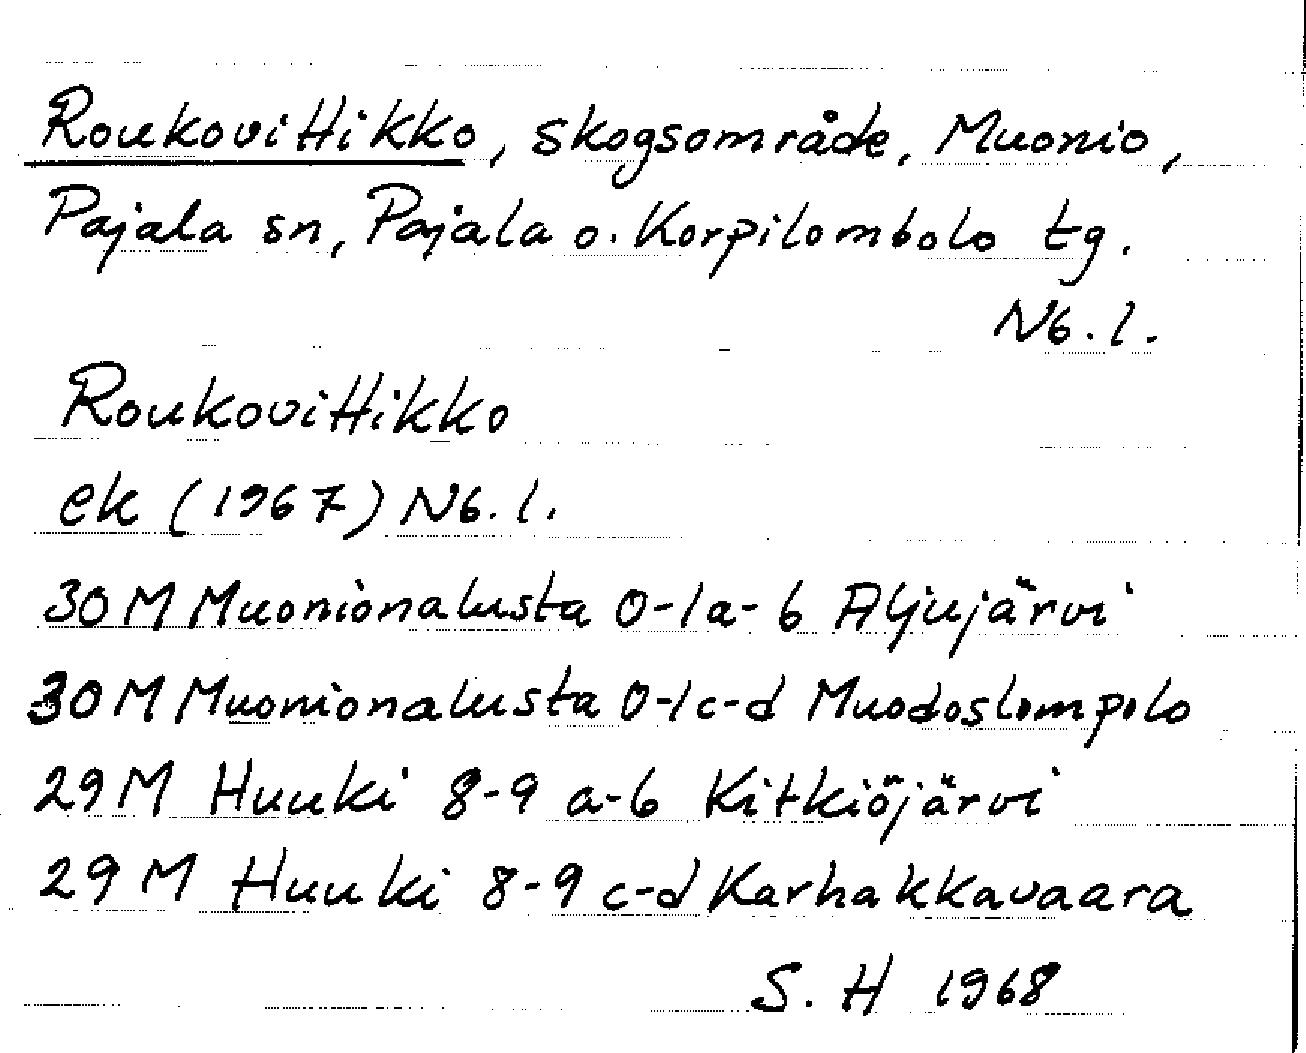 Roukovittikko, skogsområde, Muonio,
Pajala sn, Pajala o. Korpilombolo tg.
Nb. l.
Roukovittikko
ek (1967) Nb. l.
30 M Muonionalusta 0-1 a-b Aljujärvi
30 M Muonionalusta 0-1 c-d Muodoslompolo
29 M Huuki 8-9 a-b Kitkiöjärvi
29 M Huuki 8-9 c-d Karhakkavaara
S. H 1968